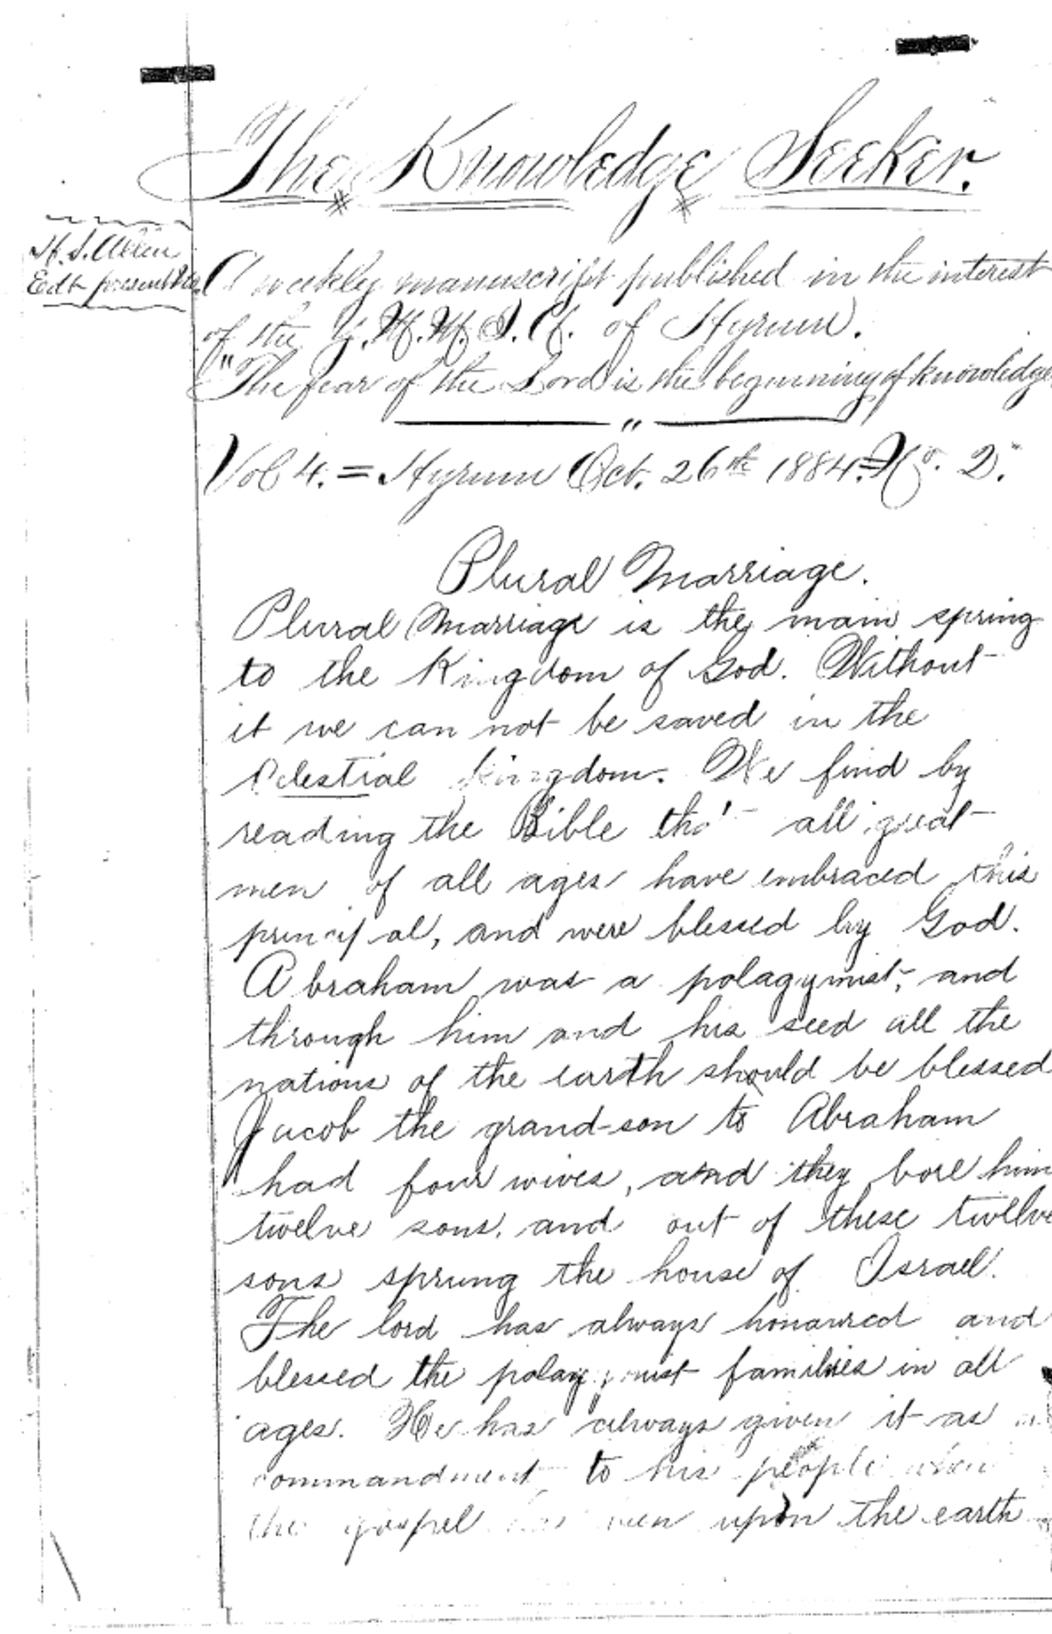 The Knowledge Seeker.
H. S. Allen
Edt present No.
A weekly manuscript published in the interest
of the Y. M. M. I. A. of Hyrum.
"The fear of the Lord is the beginning of knowledge
"
Vol 4. = Hyrum Oct. 26th 1884. = No. 2.
Plural Marriage.
Plural Marriage is the main spring
to the Kingdom of God. Without
it we can not be saved in the
Celestial Kingdom. We find by
reading the Bible that all great
men of all ages have embraced this
principal, and were blessed by God.
Abraham was a polagymist, and
through him and his seed all the
nations of the earth should be blessed
Jacob the grand-son to Abraham
had four wives, and they bore him
twelve sons. and out of these twellve
sons sprung the house of Israel.
The lord has always honoured and
blessed the polagymist families in all
ages. He has always given it as
commandment to his people when
the gospel has been upon the earth